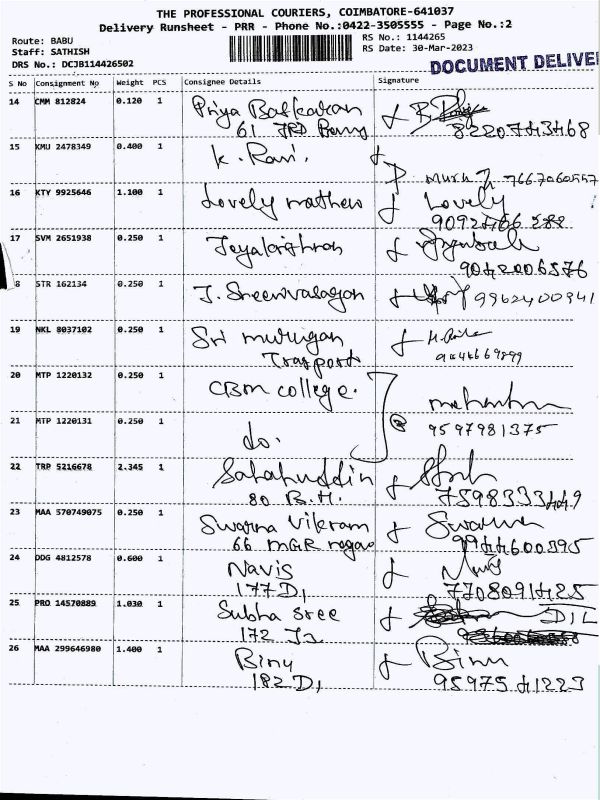 THE PROFESSIONAL COURIERS, COIMBATORE-641037
Delivery Runsheet - PRR - Phone No.:0422-3505555 - Page No.:2
Route: BABU
Staff: SATHISH
DRS No.: DCJB114426502
RS No.: 1144265
RS Date: 30-Mar-2023
DOCUMENT DELIVE
S No Consignment No Weight PCS Consignee Details Signature
14 CMM 812824 0.120 1 Priya Baskaran
61 8220743468
15 KMU 2478349 0.400 1 K. Ravi.
7667060557
16 KTY 9925646 1.100 1 Lovely mathew Lovely
17 SVM 2651938 0.250 1 Jeyakrishnan
9042006576
8 STR 162134 0.250 1 J. Sreenivasagan 9962400941
19 NKL 8037102 0.250 1 Sri murugan
Trasport
20 MTP 1220132 0.250 1 CBM college.
21 MTP 1220131 0.250 1 do. 9597981375
22 TRP 5216678 2.345 1 Sahahuddin
80 B.H.
23 MAA 570749075 0.250 1 Swarna Vikram Swarna
66 MGR nagar 9944600595
24 DDG 4812578 0.600 1 Navis
177 D, 7708091425
25 PRO 14570889 1.030 1 Subha sree DIL
172
26 MAA 299646980 1.400 1 Binu Binu
182 D, 9597541223